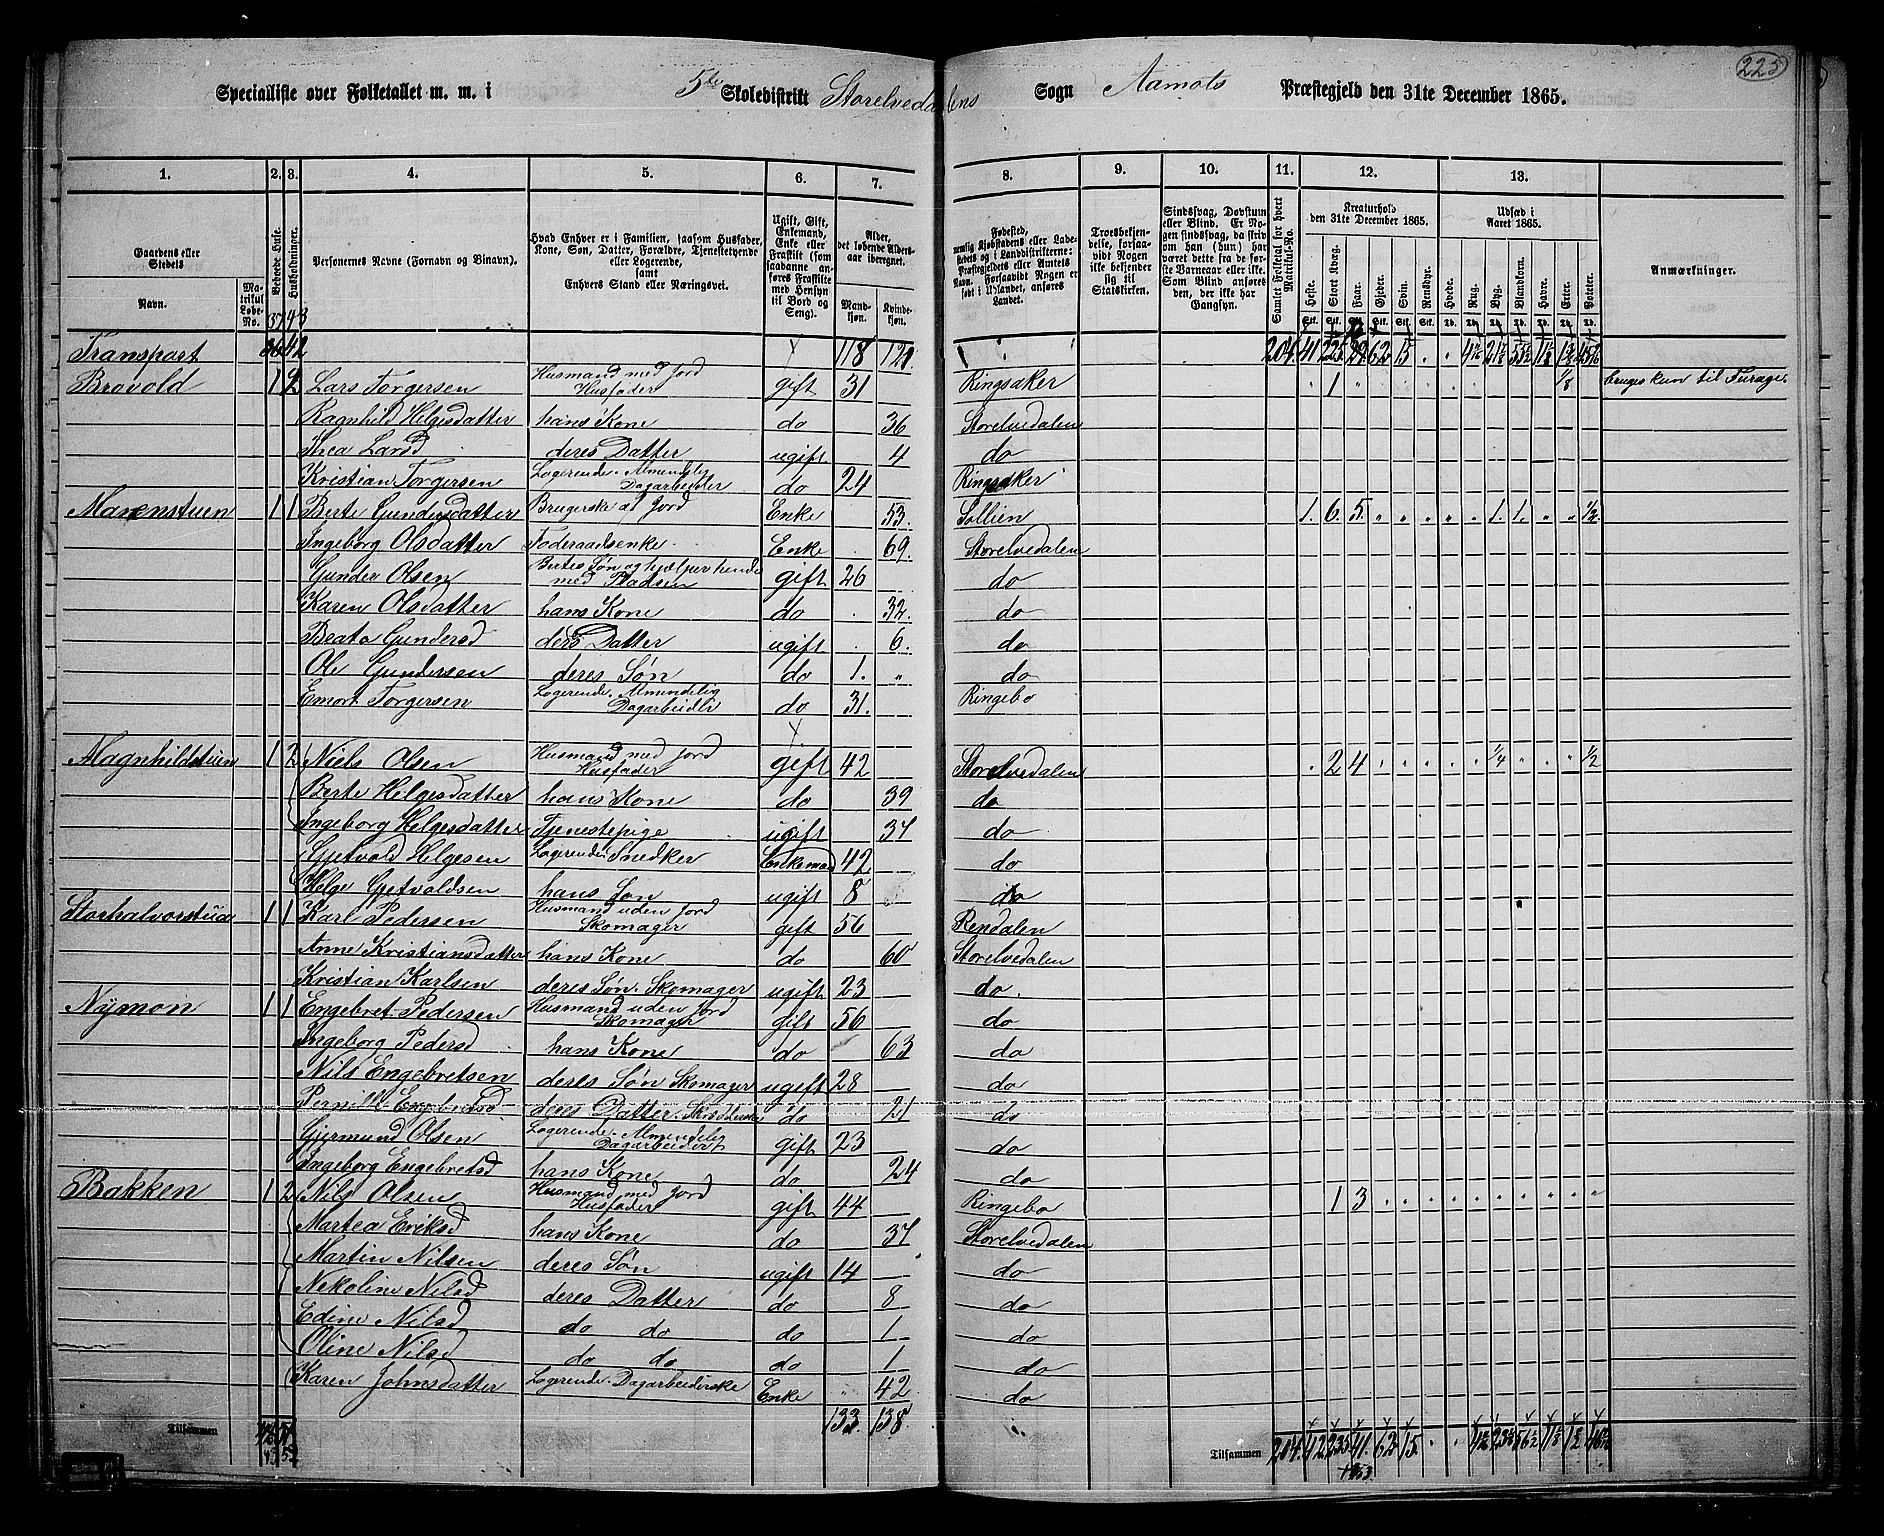 225
Specialliste over Folketallet m. m. i 5te Skoledistrikt Storelvedalens Sogn Aamots Præstegjeld den 31te December 1865.
1. 2. 3. 4. 5. 6. 7. 8. 9. 10. 11. 12. 13.
Gaardens eller Stedets
Navn.
Matrikul Løbe-No.
Beboede Huse.
Husholdninger.
Personernes Navne (Fornavn og Binavn).
Hvad Enhver er i Familien, saasom Husfader, Kone, Søn, Datter, Forældre, Tjenestetyende eller Logerende, samt Enhvers Stand eller Næringsvei.
Ugift, Gift, Enkemand, Enke eller Fraskilt (som saadanne anføres Fraskilte med Hensyn til Bord og Seng).
Alder, det løbende Aldersaar iberegnet.
Mandkjøn. Kvindekjøn.
Fødested, nemlig Kjøbstadens eller Ladestedets og i Landdistrikterne: Præstegjeldets eller Amtets Navn. Forsaavidt Nogen er født i Udlandet, anføres Landet.
Troesbekjendelse, forsaavidt Nogen ikke bekjender sig til Statskirken.
Sindssvag, Døvstum eller Blind. Er Nogen sindssvag, da skriv om han (hun) har været dette fra de første Barneaar eller ikke. Som Blind anføres den, der ikke har Gangsyn.
Samlet Folketal for hvert Matrikul-No.
Kreaturhold den 31te December 1865.
Heste. Stort Kvæg. Faar. Gjeder. Svin. Rensdyr.
Udsæd i Aaret 1865.
Hvede. Rug. Byg. Blandkorn. Havre. Erter. Poteter.
Anmærkninger.
Transport 36 42 118 121 204
Brovold 1 2 Lars Torgersen Husmand med Jord Husfader gift 31 Ringsaker 1 1/8 bruges kun til Furage.
Ragnhild Helgesdatter hans Kone do 36 Storelvedalen
Thea Larsd deres Datter ugift 4 do
Kristian Torgersen Logerende. Almindelig Dagarbeider do 24 Ringsaker
Marenstuen 1 1 Berte Gundersdatter Brugerske af Jord Enke 53. Sollien 1. 6. 5. 1. 1. 1/2
Ingeborg Olsdatter Føderaadsenke Enke 69. Storelvedalen
Gunder Olsen Bertes Søn og hjælper hende med Pladsen gift 26 do
Karen Olsdatter hans Kone do 32. do
Beata Gundersd deres Datter ugift 6. do
Ole Gundersen deres Søn do 1. do
Emort Torgersen Logerende. Almindelig Dagarbeidli do 31. Ringebo
Magnhildstuen 1 2 Niels Olsen Husmand med Jord Husfader gift 42 Storelvedalen 2 4 1/4 1/2
Berte Helgesdatter hans Kone do 39 do
Ingeborg Helgesdatter Tjenestepige ugift 37 do
Gjetvold Helgesen Logerende Snedker Enkemand 42 do
Helge Gjetvoldsen hans Søn ugift 8 do
Storhalvorstua 1 1 Karl Pedersen Husmand uden Jord Skomager gift 56 Rendalen
Anne Kristiansdatter hans Kone do 60 Storelvedalen
Kristian Karlsen deres Søn. Skomager ugift 23 do.
Nymon 1 1 Engebret Pedersen Husmand uden Jord Skomager gift 56 do
Ingeborg Pedersd hans Kone do 63 do
Nils Engebretsen deres Søn Skomager ugift 28 do
Pernille Engebretsd deres Datter. do 21 do
Gjermund Olsen Logerende. Almindelig Dagarbeider gift 23 do
Ingeborg Engebretsd hans Kone do 24 do
Bakken 1 2 Nils Olsen Husmand med Jord Husfader gift 44 Ringebo 1 3
Martea Eriksd hans Kone do 37 Storelvedalen
Martin Nilsen deres Søn ugift 14 do
Nekoline Nilsd deres Datter do 8 do
Edine Nilsd do do do 1 do
Oline Nilsd do do do 1 do
Karen Johnsdatter Logerende. Dagarbeiderske Enke 42 do
Tilsammen 133. 138 Tilsammen 204. 42 235 41. 62 15.